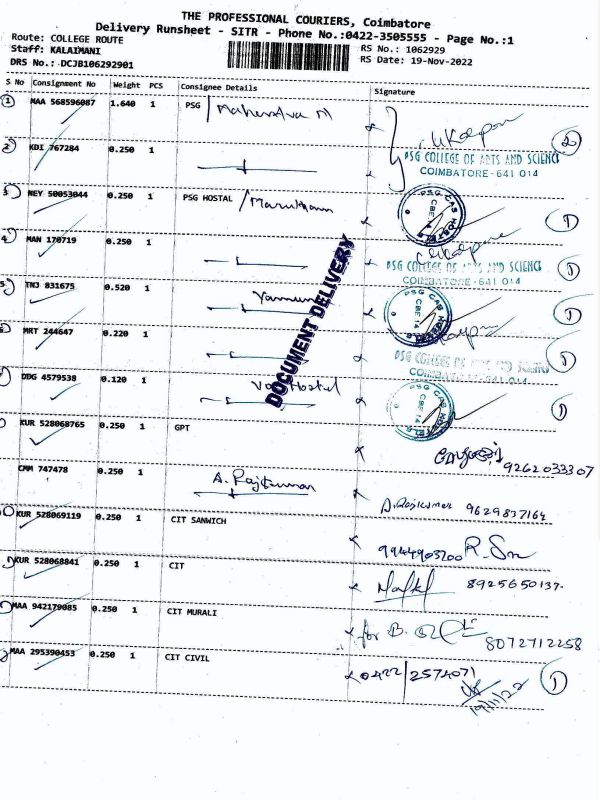 THE PROFESSIONAL COURIERS, Coimbatore
Delivery Runsheet - SITR - Phone No.:0422-3505555 - Page No.:1
Route: COLLEGE ROUTE
Staff: KALAIMANI
DRS No.: DCJB106292901
RS No.: 1062929
RS Date: 19-Nov-2022
S No Consignment No Weight PCS Consignee Details Signature
1 MAA 568596087 1.640 1 PSG / Mahendra M
2 KDI 767284 0.250 1
PSG COLLEGE OF ARTS AND SCIENCE
COIMBATORE - 641 014
2
3 NEY 50053044 0.250 1 PSG HOSTAL / 1
4 MAN 170719 0.250 1
PSG COLLEGE OF ARTS AND SCIENCE 1
COIMBATORE - 641 014
5 TNJ 831675 0.520 1
PSG CAS HOSTELS
CBE 14
1
6 MRT 244647 0.220 1
PSG COLLEGE OF ARTS AND SCIENCE 1
COIMBATORE - 641 014
DOCUMENT DELIVERY
DDG 4579538 0.120 1 Hostel
PSG CAS HOSTELS
CBE 14
1
KUR 528068765 0.250 1 GPT
9262033307
CMM 747478 0.250 1 A. Rajkumar
A. Rajkumar 9629837164
KUR 528069119 0.250 1 CIT SANWICH
9944903200
KUR 528068841 0.250 1 CIT
8925650137
MAA 942179085 0.250 1 CIT MURALI
for B.
8072712258
MAA 295390453 0.250 1 CIT CIVIL
0422/2574071 1
19/11/22